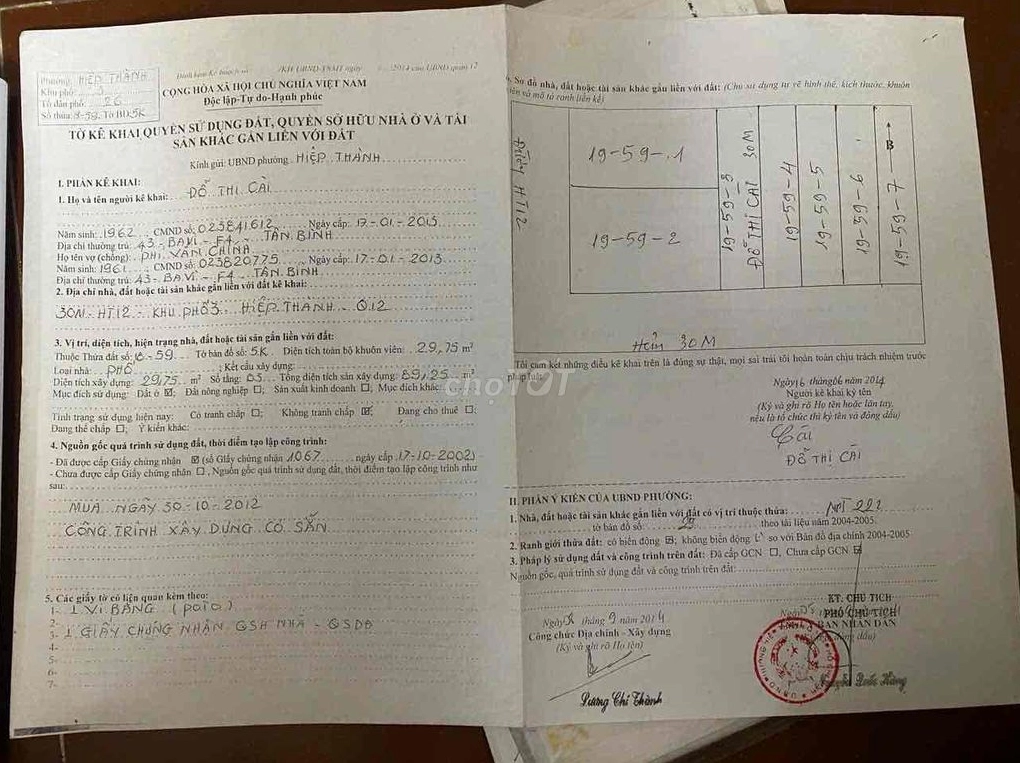 Phường: HIỆP THÀNH
Khu phố: 3
Tổ dân phố: 26
Số thửa: 8-59. Tờ BĐ: 5K
Đính kèm Kế hoạch số /KH-UBND-TNMT ngày 2014 của UBND quận 12
CỘNG HÒA XÃ HỘI CHỦ NGHĨA VIỆT NAM
Độc lập-Tự do-Hạnh phúc
TỜ KÊ KHAI QUYỀN SỬ DỤNG ĐẤT, QUYỀN SỞ HỮU NHÀ Ở VÀ TÀI
SẢN KHÁC GẮN LIỀN VỚI ĐẤT
Kính gửi: UBND phường: HIỆP THÀNH
I. PHẦN KÊ KHAI:
1. Họ và tên người kê khai: ĐỖ THỊ CÀI
Năm sinh: 1962 CMND số: 023841612 Ngày cấp: 17-01-2013
Địa chỉ thường trú: 43-BAVÌ-F4-TÂN BÌNH
Họ tên vợ (chồng): PHÍ VĂN CHỈNH
Năm sinh: 1961 CMND số: 023820775 Ngày cấp: 17-01-2013
Địa chỉ thường trú: 43-BAVÌ-F4-TÂN BÌNH
2. Địa chỉ nhà, đất hoặc tài sản khác gắn liền với đất kê khai:
30M-HT12-KHU PHỐ 3-HIỆP THÀNH-Q12
3. Vị trí, diện tích, hiện trạng nhà, đất hoặc tài sản gắn liền với đất:
Thuộc Thửa đất số: 8-59 Tờ bản đồ số: 5K Diện tích toàn bộ khuôn viên: 29,75 m²
Loại nhà: PHỐ ; Kết cấu xây dựng:
Diện tích xây dựng: 29,75 m² Số tầng: 03 Tổng diện tích sàn xây dựng: 89,25 m²
Mục đích sử dụng: Đất ở ☑; Đất nông nghiệp ☐; Sản xuất kinh doanh ☐; Mục đích khác:
Tình trạng sử dụng hiện nay: Có tranh chấp ☐; Không tranh chấp ☑; Đang cho thuê ☐;
Đang thế chấp ☐; Ý kiến khác:
4. Nguồn gốc quá trình sử dụng đất, thời điểm tạo lập công trình:
- Đã được cấp Giấy chứng nhận ☑ (số Giấy chứng nhận 1067 ngày cấp 17-10-2002)
- Chưa được cấp Giấy chứng nhận ☐, Nguồn gốc quá trình sử dụng đất, thời điểm tạo lập công trình như
sau:
MUA NGÀY 30-10-2012
CÔNG TRÌNH XÂY DỰNG CÓ SẴN
5. Các giấy tờ có liên quan kèm theo:
1- 1 VI BẰNG (POTO)
2-
3- 1 GIẤY CHỨNG NHẬN QSH NHÀ-QSDĐ
4-
5-
6-
7-
6. Sơ đồ nhà, đất hoặc tài sản khác gắn liền với đất: (Chủ sử dụng tự vẽ hình thể, kích thước, khuôn
viên và mô tả ranh liền kề)
HT12
19-59-1
19-59-2
19-59-3
ĐỖ THỊ CÀI 30M
19-59-4
19-59-5
19-59-6
19-59-7
B
Hẻm 30M
Tôi cam kết những điều kê khai trên là đúng sự thật, mọi sai trái tôi hoàn toàn chịu trách nhiệm trước
pháp luật.
Ngày 16 tháng 06 năm 2014
Người kê khai ký tên
(Ký và ghi rõ Họ tên hoặc lăn tay,
nếu là tổ chức thì ký tên và đóng dấu)
Cài
ĐỖ THỊ CÀI
II. PHẦN Ý KIẾN CỦA UBND PHƯỜNG:
1. Nhà, đất hoặc tài sản khác gắn liền với đất có vị trí thuộc thửa: 222
tờ bản đồ số: 29 theo tài liệu năm 2004-2005.
2. Ranh giới thửa đất: có biến động ☑; không biến động so với Bản đồ địa chính 2004-2005
3. Pháp lý sử dụng đất và công trình trên đất: Đã cấp GCN ☐, Chưa cấp GCN ☑
Nguồn gốc, quá trình sử dụng đất và công trình trên đất:
Ngày tháng 9 năm 2014
Công chức Địa chính - Xây dựng
(Ký và ghi rõ Họ tên)
Dương Chí Thành
KT. CHỦ TỊCH
PHÓ CHỦ TỊCH
chợTỐT